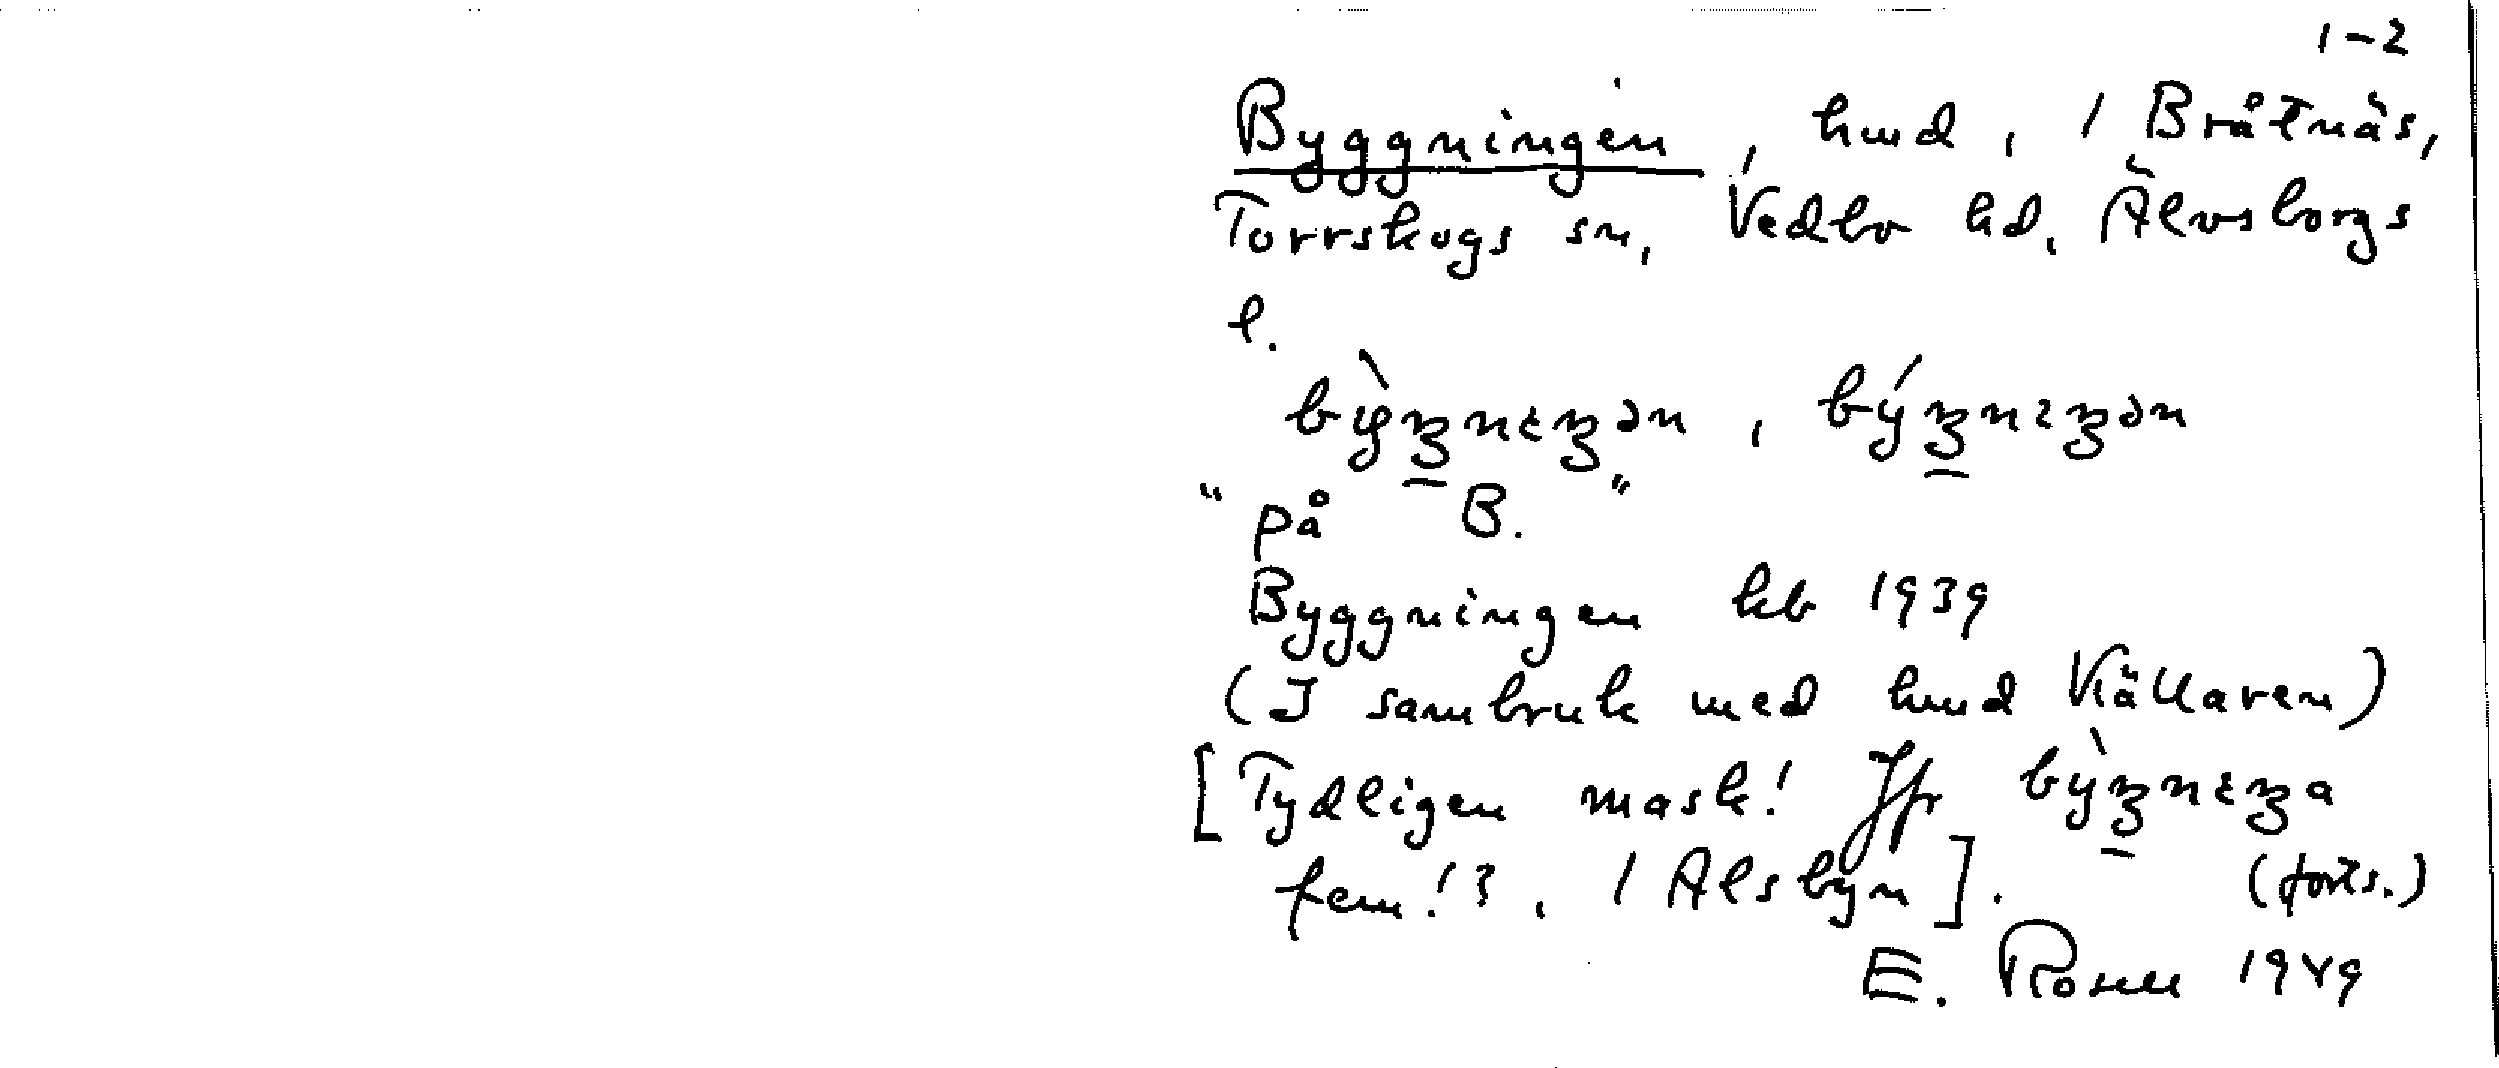 1-2
Byggningen, hmd, 1 Bråtnäs,
Torrskogs sn, Vedbo hd, Älvsborgs
l.
bỳꜫnɛꜫən, býꜫnɛꜫən
"på B."
Byggningen kb 1939
(I sambruk med hmd Källaren)
[Tydligen mask! Jfr bỳꜫnɛꜫa
fem!?, 1 Alsbyn]. (forts.)
E. Rosell 1949